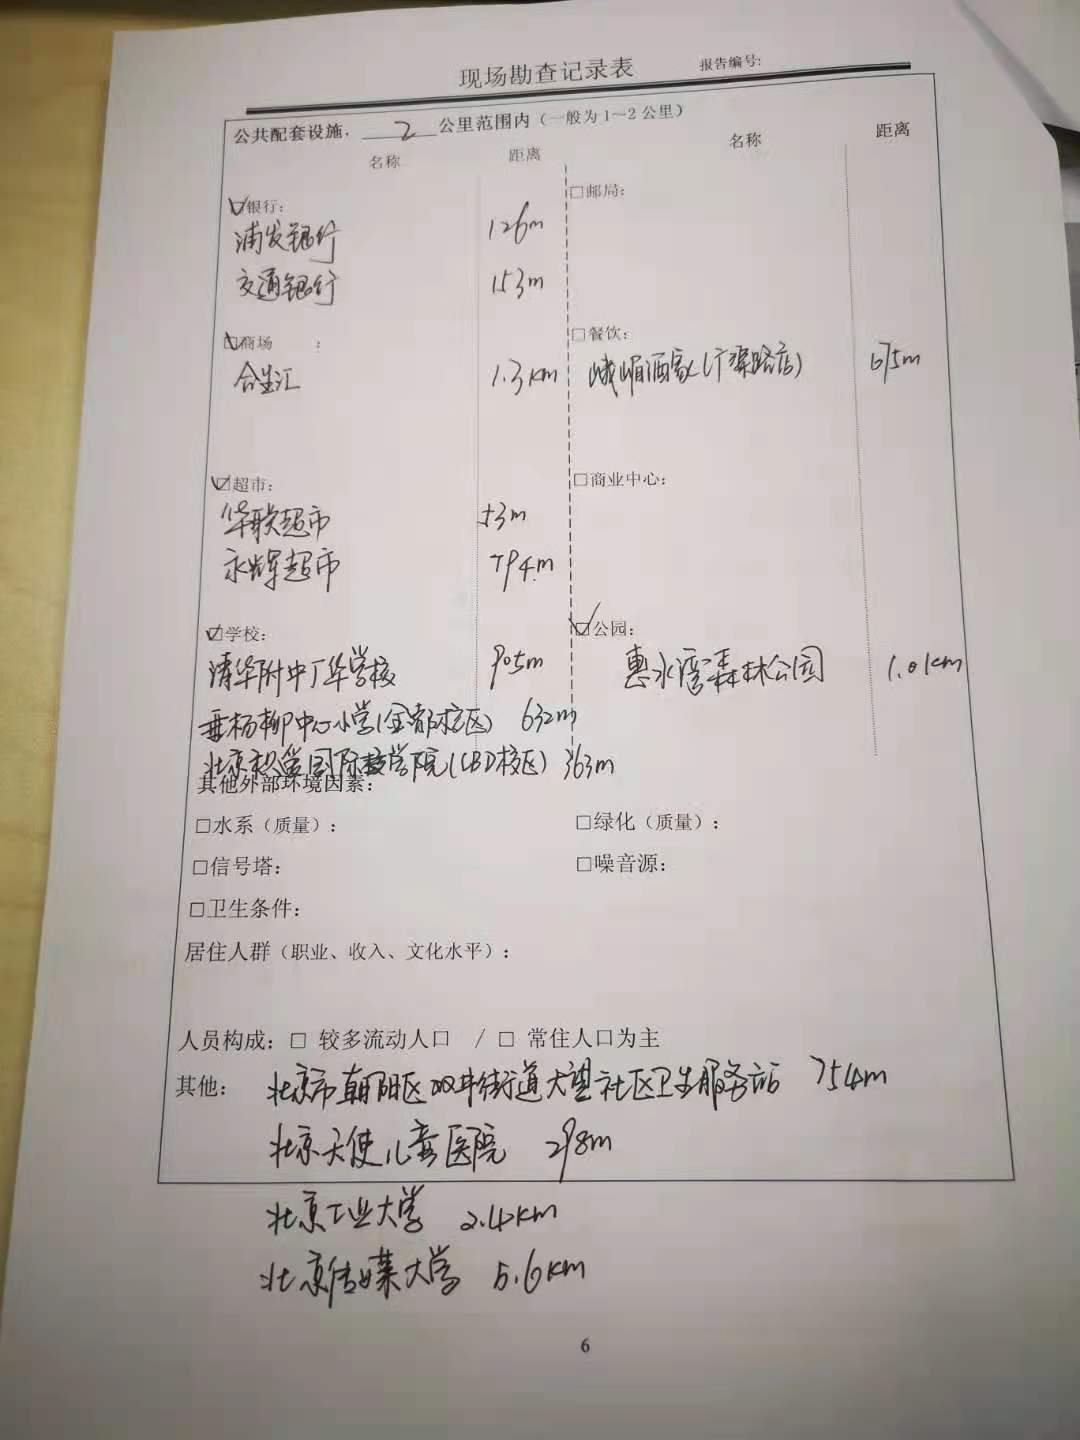 现场勘查记录表 报告编号:
公共配套设施, 2 公里范围内（一般为1～2公里）
名称 距离 名称 距离
☑银行: □邮局:
浦发银行 126m
交通银行 153m
☑商场 : □餐饮:
合生汇 1.3km 峨嵋酒家(广渠路店) 675m
☑超市: □商业中心:
华联超市 53m
永辉超市 794m
☑学校: ☑公园:
清华附中广华学校 905m 惠水湾森林公园 1.01km
垂杨柳中心小学(金都校区) 632m
北京 国际 学院(CBD校区) 363m
其他外部环境因素:
□水系（质量）: □绿化（质量）:
□信号塔: □噪音源:
□卫生条件:
居住人群（职业、收入、文化水平）:
人员构成: □ 较多流动人口 / □ 常住人口为主
其他: 北京市朝阳区双井街道大望社区卫生服务站 754m
北京天使儿童医院 298m
北京工业大学 2.4km
北京传媒大学 5.6km
6